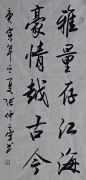 雅量存江海
豪情越古今
庚寅年之夏张仲亭